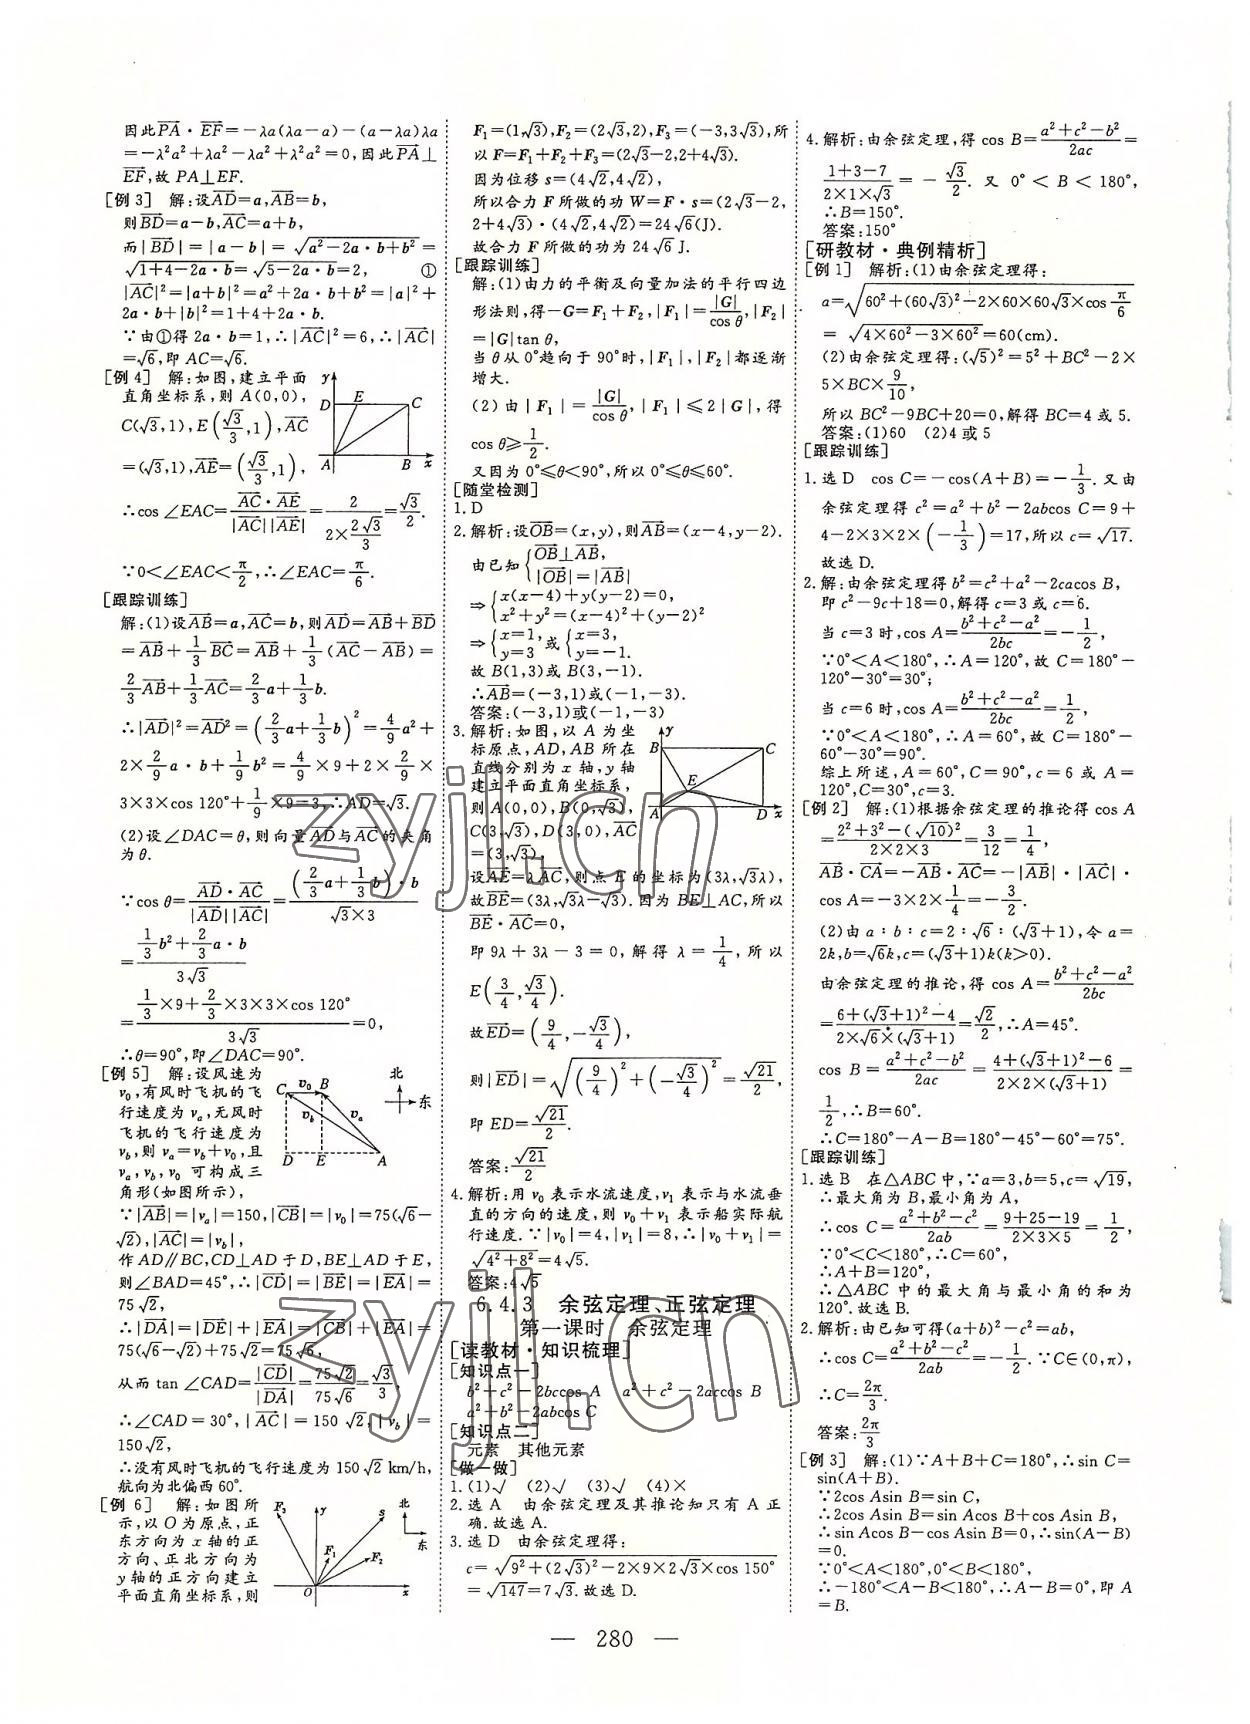 因此PA·EF=-λa(λa-a)-(a-λa)λa
=-λ²a²+λa²-λa²+λ²a²=0,因此PA⊥
EF,故 PA⊥EF.
[例 3] 解:设AD=a,AB=b,
则BD=a-b,AC=a+b,
而|BD|=|a-b|=√(a²-2a·b+b²)=
√(1+4-2a·b)=√(5-2a·b)=2, ①
|AC|²=|a+b|²=a²+2a·b+b²=|a|²+
2a·b+|b|²=1+4+2a·b.
∵由①得2a·b=1,∴|AC|²=6,∴|AC|
=√6,即 AC=√6.
[例 4] 解:如图,建立平面
直角坐标系,则 A(0,0),
C(√3,1),E(√3/3,1),AC
=(√3,1),AE=(√3/3,1),
y D E C A B x
∴cos∠EAC=AC·AE/|AC||AE|=2/(2×2√3/3)=√3/2.
∵0<∠EAC<π/2,∴∠EAC=π/6.
[跟踪训练]
解:(1)设AB=a,AC=b,则AD=AB+BD
=AB+1/3BC=AB+1/3(AC-AB)=
2/3AB+1/3AC=2/3a+1/3b.
∴|AD|²=AD²=(2/3a+1/3b)²=4/9a²+
2×2/9a·b+1/9b²=4/9×9+2×2/9×
3×3×cos 120°+1/9×9=3,∴AD=√3.
(2)设∠DAC=θ,则向量AD与AC的夹角
为θ.
∵cos θ=AD·AC/|AD||AC|=(2/3a+1/3b)·b/(√3×3)
=(1/3b²+2/3a·b)/3√3
=(1/3×9+2/3×3×3×cos 120°)/3√3=0,
∴θ=90°,即∠DAC=90°.
[例 5] 解:设风速为
v₀,有风时飞机的飞
行速度为 vₐ,无风时
飞机的飞行速度为
v_b,则 vₐ=v_b+v₀,且
vₐ,v_b,v₀ 可构成三
角形(如图所示),
C v₀ B v_b vₐ D E A 北 东
∵|AB|=|vₐ|=150,|CB|=|v₀|=75(√6-
√2),|AC|=|v_b|,
作 AD∥BC,CD⊥AD 于 D,BE⊥AD 于 E,
则∠BAD=45°,∴|CD|=|BE|=|EA|=
75√2,
∴|DA|=|DE|+|EA|=|CB|+|EA|=
75(√6-√2)+75√2=75√6,
从而 tan∠CAD=|CD|/|DA|=75√2/75√6=√3/3.
∴∠CAD=30°,|AC|=150√2,|v_b|=
150√2,
∴没有风时飞机的飞行速度为 150√2 km/h,
航向为北偏西 60°.
[例 6] 解:如图所
示,以 O 为原点,正
东方向为 x 轴的正
方向、正北方向为
y 轴的正方向建立
平面直角坐标系,则
F₃ y S F₁ F₂ O x 北 东
F₁=(1,√3),F₂=(2√3,2),F₃=(-3,3√3),所
以 F=F₁+F₂+F₃=(2√3-2,2+4√3).
因为位移 s=(4√2,4√2),
所以合力 F 所做的功 W=F·s=(2√3-2,
2+4√3)·(4√2,4√2)=24√6(J).
故合力 F 所做的功为 24√6 J.
[跟踪训练]
解:(1)由力的平衡及向量加法的平行四边
形法则,得-G=F₁+F₂,|F₁|=|G|/cos θ,|F₂|
=|G|tan θ,
当 θ 从 0°趋向于 90°时,|F₁|,|F₂|都逐渐
增大.
(2)由|F₁|=|G|/cos θ,|F₁|≤2|G|,得
cos θ≥1/2.
又因为 0°≤θ<90°,所以 0°≤θ≤60°.
[随堂检测]
1. D
2. 解析:设OB=(x,y),则AB=(x-4,y-2).
由已知{OB⊥AB,
|OB|=|AB|
⇒{x(x-4)+y(y-2)=0,
x²+y²=(x-4)²+(y-2)²
⇒{x=1, y=3 或{x=3, y=-1.
故 B(1,3)或 B(3,-1).
∴AB=(-3,1)或(-1,-3).
答案:(-3,1)或(-1,-3)
3. 解析:如图,以 A 为坐
标原点,AD,AB 所在
直线分别为 x 轴,y 轴
建立平面直角坐标系,
则 A(0,0),B(0,√3),
C(3,√3),D(3,0),AC
=(3,√3),
y B C E A D x
设AE=λAC,则点 E 的坐标为(3λ,√3λ),
故BE=(3λ,√3λ-√3).因为 BE⊥AC,所以
BE·AC=0,
即 9λ+3λ-3=0,解得 λ=1/4,所以
E(3/4,√3/4).
故ED=(9/4,-√3/4),
则|ED|=√((9/4)²+(-√3/4)²)=√21/2,
即 ED=√21/2.
答案:√21/2
4. 解析:用 v₀ 表示水流速度,v₁ 表示与水流垂
直的方向的速度,则 v₀+v₁ 表示船实际航
行速度.∵|v₀|=4,|v₁|=8,∴|v₀+v₁|=
√(4²+8²)=4√5.
答案:4√5
6.4.3 余弦定理、正弦定理
第一课时 余弦定理
[读教材·知识梳理]
[知识点一]
b²+c²-2bccos A a²+c²-2accos B
a²+b²-2abcos C
[知识点二]
元素 其他元素
[做一做]
1. (1)√ (2)√ (3)√ (4)×
2. 选 A 由余弦定理及其推论知只有 A 正
确.故选 A.
3. 选 D 由余弦定理得:
c=√(9²+(2√3)²-2×9×2√3×cos 150°)
=√147=7√3.故选 D.
4. 解析:由余弦定理,得 cos B=(a²+c²-b²)/2ac=
(1+3-7)/(2×1×√3)=-√3/2.又 0°<B<180°,
∴B=150°.
答案:150°
[研教材·典例精析]
[例 1] 解析:(1)由余弦定理得:
a=√(60²+(60√3)²-2×60×60√3×cos π/6)
=√(4×60²-3×60²)=60(cm).
(2)由余弦定理得:(√5)²=5²+BC²-2×
5×BC×9/10,
所以 BC²-9BC+20=0,解得 BC=4 或 5.
答案:(1)60 (2)4 或 5
[跟踪训练]
1. 选 D cos C=-cos(A+B)=-1/3.又由
余弦定理得 c²=a²+b²-2abcos C=9+
4-2×3×2×(-1/3)=17,所以 c=√17.
故选 D.
2. 解:由余弦定理得 b²=c²+a²-2cacos B,
即 c²-9c+18=0,解得 c=3 或 c=6.
当 c=3 时,cos A=(b²+c²-a²)/2bc=-1/2,
∵0°<A<180°,∴A=120°,故 C=180°-
120°-30°=30°;
当 c=6 时,cos A=(b²+c²-a²)/2bc=1/2,
∵0°<A<180°,∴A=60°,故 C=180°-
60°-30°=90°.
综上所述,A=60°,C=90°,c=6 或 A=
120°,C=30°,c=3.
[例 2] 解:(1)根据余弦定理的推论得 cos A
=(2²+3²-(√10)²)/(2×2×3)=3/12=1/4,
AB·CA=-AB·AC=-|AB|·|AC|·
cos A=-3×2×1/4=-3/2.
(2)由 a∶b∶c=2∶√6∶(√3+1),令 a=
2k,b=√6k,c=(√3+1)k(k>0).
由余弦定理的推论,得 cos A=(b²+c²-a²)/2bc
=(6+(√3+1)²-4)/(2×√6×(√3+1))=√2/2,∴A=45°.
cos B=(a²+c²-b²)/2ac=(4+(√3+1)²-6)/(2×2×(√3+1))=
1/2,∴B=60°.
∴C=180°-A-B=180°-45°-60°=75°.
[跟踪训练]
1. 选 B 在△ABC 中,∵a=3,b=5,c=√19,
∴最大角为 B,最小角为 A,
∴cos C=(a²+b²-c²)/2ab=(9+25-19)/(2×3×5)=1/2,
∵0°<C<180°,∴C=60°,
∴A+B=120°,
∴△ABC 中的最大角与最小角的和为
120°.故选 B.
2. 解析:由已知可得(a+b)²-c²=ab,
∴cos C=(a²+b²-c²)/2ab=-1/2.∵C∈(0,π),
∴C=2π/3.
答案:2π/3
[例 3] 解:(1)∵A+B+C=180°,∴sin C=
sin(A+B).
∵2cos Asin B=sin C,
∴2cos Asin B=sin Acos B+cos Asin B,
∴sin Acos B-cos Asin B=0,∴sin(A-B)
=0.
∵0°<A<180°,0°<B<180°,
∴-180°<A-B<180°,∴A-B=0°,即 A
=B.
— 280 —
zyjl.cn
zyjl.cn